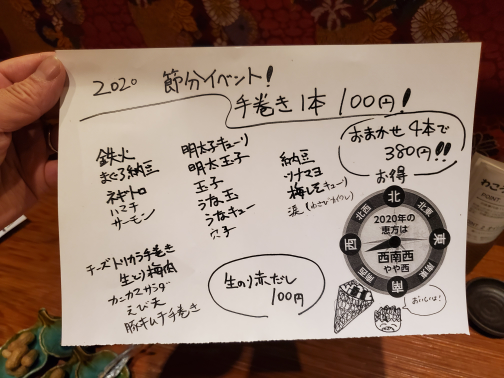 2020 節分イベント!
手巻き1本 100円!
おまかせ 4本で
380円!!
お得
鉄火
まぐろ納豆
ネギトロ
ハマチ
サーモン
明太子キューリ
明太玉子
玉子
うな玉
うなキュー
穴子
納豆
ツナマヨ
梅しそキューリ
涙(わさびめし)
チーズトリカラ手巻き
生とり梅肉
カニカマサラダ
えび天
豚キムチ手巻き
生のり赤だし
100円
北
北西
北東
西
東
南西
南東
南
2020年の
恵方は
西南西
やや西
おいしいよ!